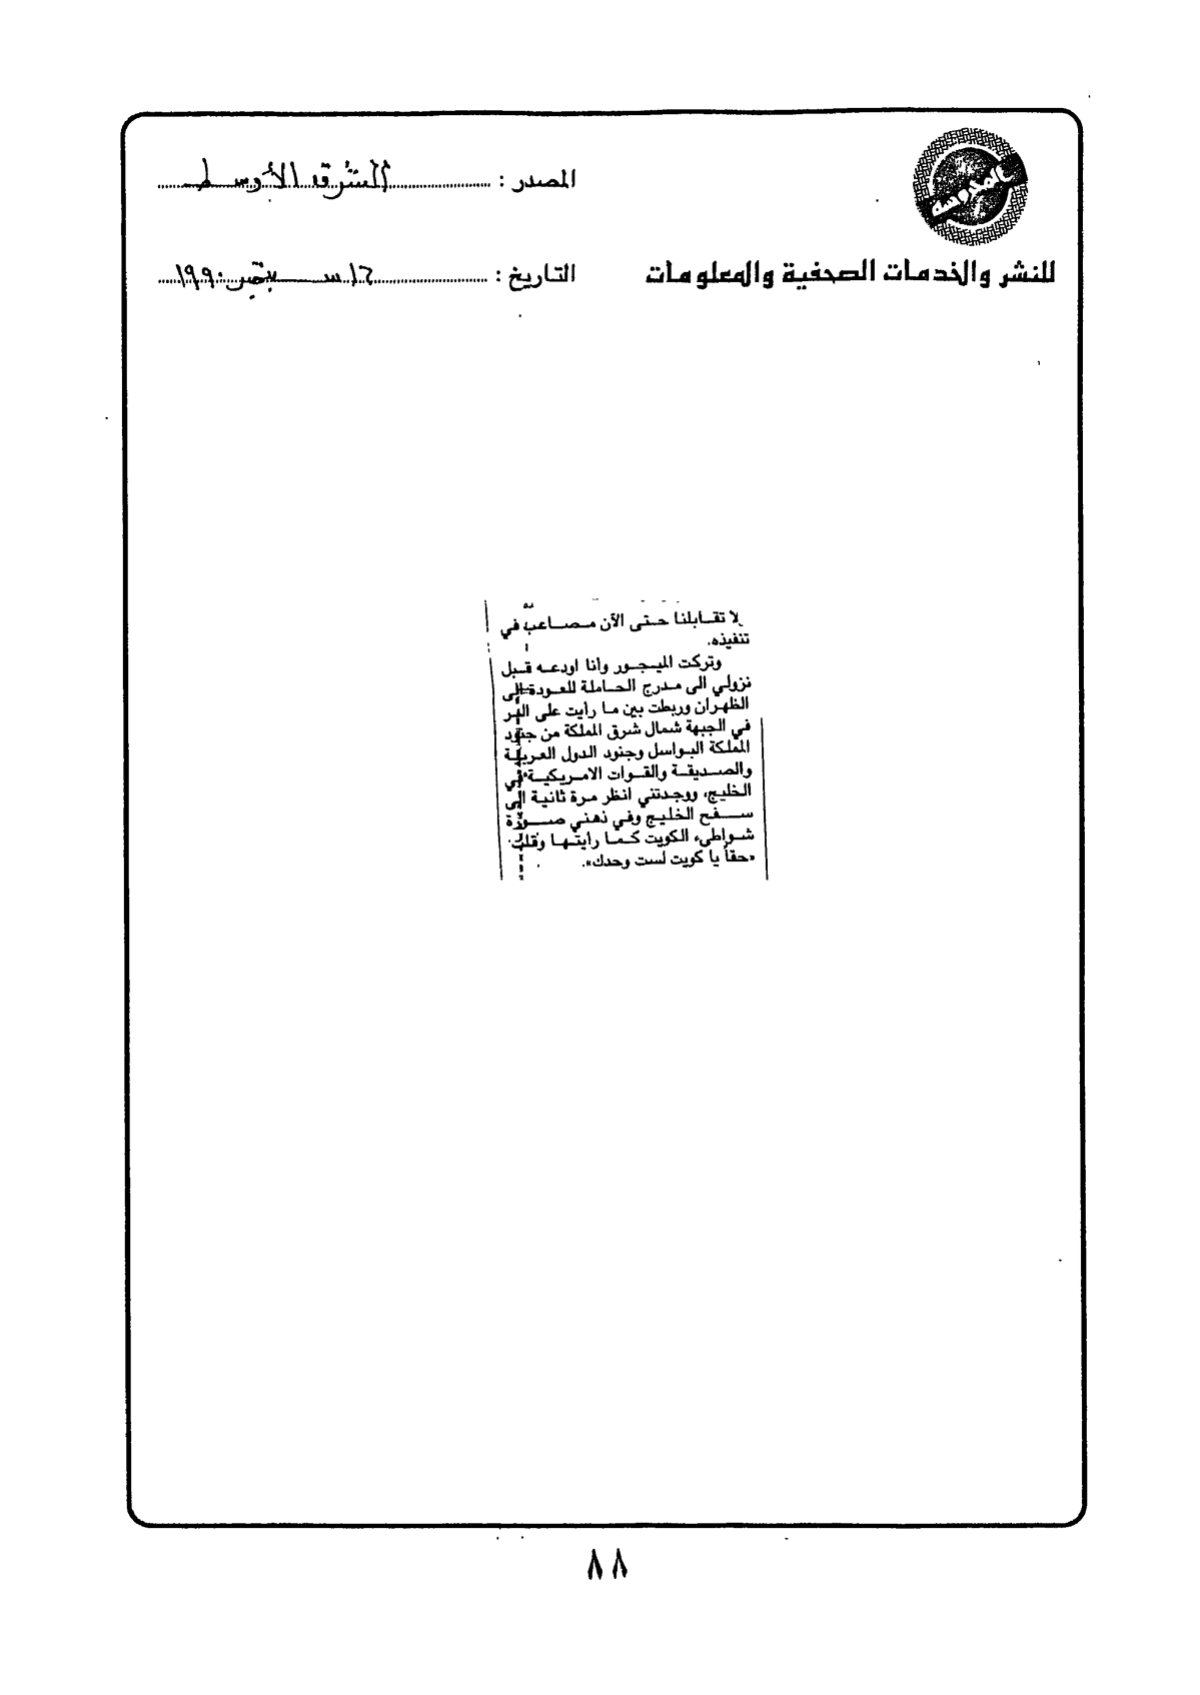 المصدر : الشرق الأوسط
للنشر والخدمات الصحفية والمعلومات
التاريخ : ١٦ سبتمبر ١٩٩٠
لا تقابلنا حتى الآن مصاعب في
تنفيذه.
وتركت الميجور وانا اودعه قبل
نزولي الى مدرج الحاملة للعودة الى
الظهران وربطت بين ما رايت على البر
في الجبهة شمال شرق المملكة من جنود
المملكة البواسل وجنود الدول العربية
والصديقة والقوات الامريكية في
الخليج، ووجدتني انظر مرة ثانية الى
سفح الخليج وفي ذهني صورة
شواطىء الكويت كما رايتها وقلت
«حقاً يا كويت لست وحدك».
٨٨